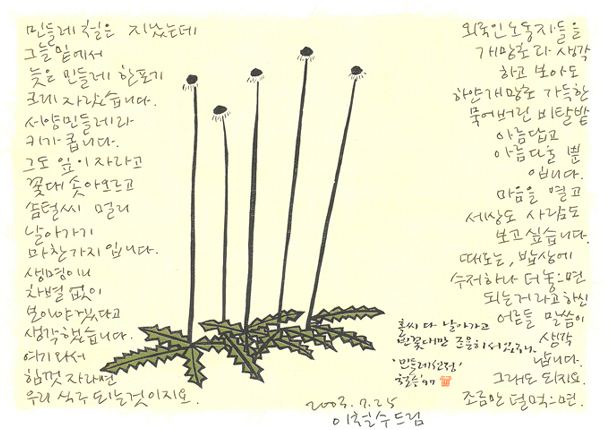 민들레 철은 지났는데
그늘 밑에서
늦은 민들레 한포기
크게 자랐습니다.
서양민들레라
키가 큽니다.
그도 잎이 자라고
꽃대 솟아오르고
솜털씨 멀리
날아가기
마찬가지입니다.
생명이니
차별 없이
보아야겠다고
생각했습니다.
여기 와서
힘껏 자라면
우리 식구 되는것이지요.
외국인노동자들을
개망초라 생각
하고 보아도
하얀개망초 가득한
묵어버린 비탈밭
아름답고
아름다울 뿐
입니다.
마음을 열고
세상도 사람도
보고 싶습니다.
때로는, 밥상에
수저하나 더 놓으면
되는거라고 하신
어른들 말씀이
생각
납니다.
그래도 되지요.
조금만 덜먹으면.
홀씨 다 날아가고
빈꽃대만 조용히 서있네.
'민들레선전'
철수 '97
2003. 7. 25
이철수 드림